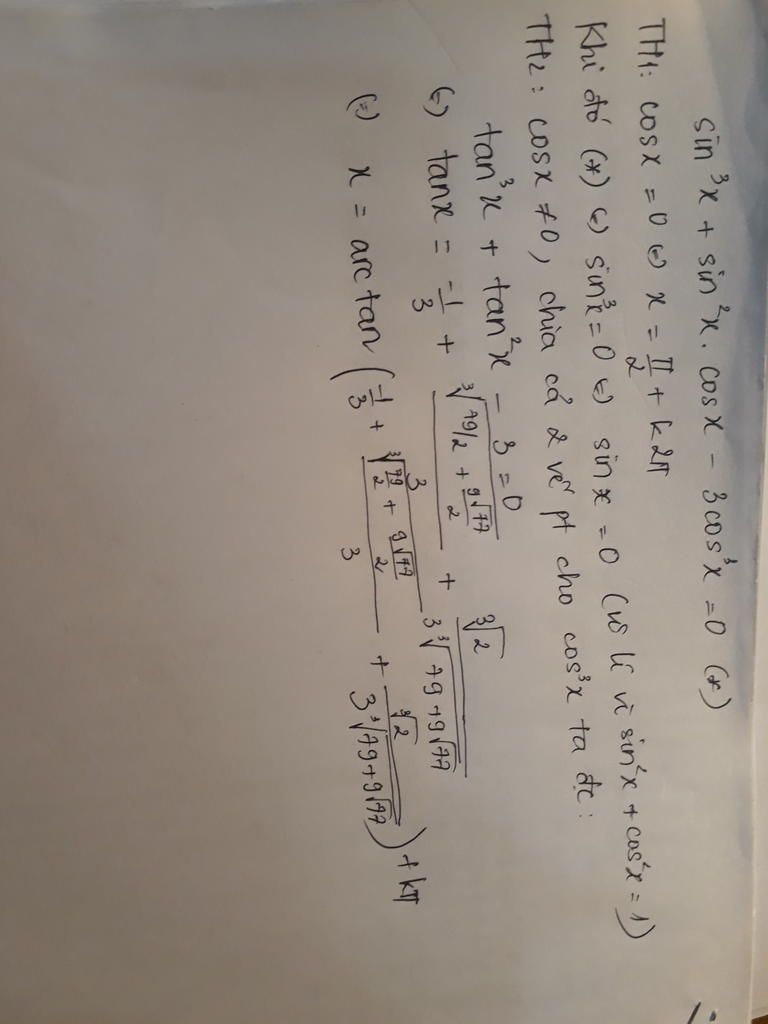 sin³x + sin²x. cosx - 3cos³x = 0 (*)
TH1: cosx = 0 (=) x = π/2 + k2π
Khi đó (*) (=) sin³x = 0 (=) sinx = 0 (vô lí vì sin²x + cos²x = 1)
TH2: cosx ≠ 0, chia cả 2 vế pt cho cos³x ta đc:
tan³x + tan²x - 3 = 0
(=) tanx = -1/3 + ∛(79/2 + 9√77/2)/3 + ∛2/(3∛(79+9√77))
(=) x = arctan (-1/3 + ∛(79/2 + 9√77/2)/3 + ∛2/(3∛(79+9√77))) + kπ